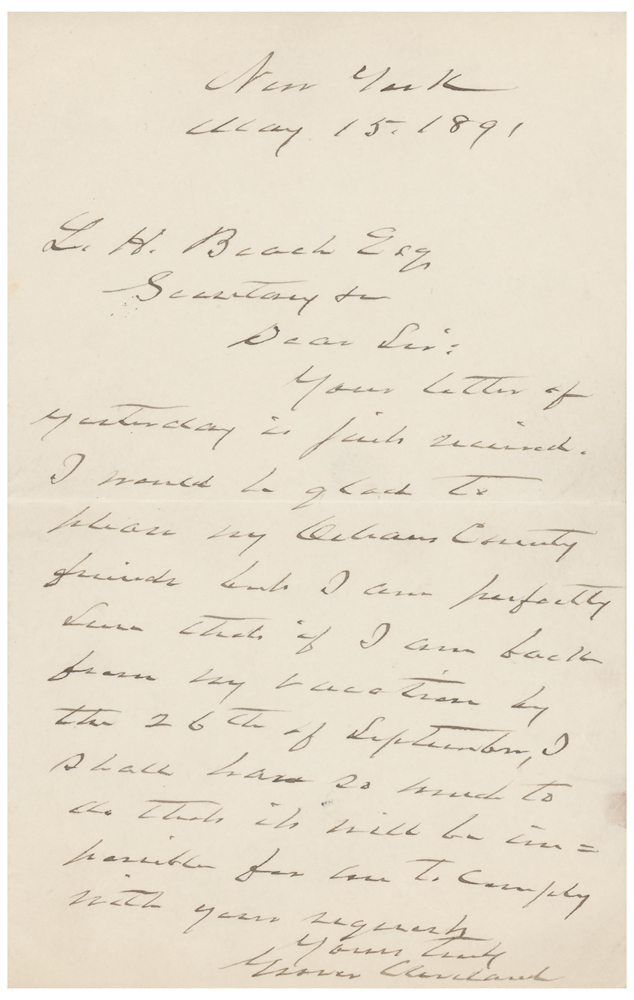 New York
May 15. 1891
L. H. Beach Esq
Secretary &c
Dear Sir:
Your letter of
yesterday is just received.
I would be glad to
please my Orleans County
friends but I am perfectly
sure that if I am back
from my vacation by
the 26th of September, I
shall have so much to
do that it will be im=
possible for me to comply
with your request
Yours truly
Grover Cleveland